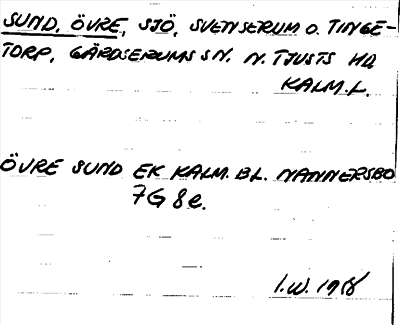 SUND, ÖVRE, SJÖ, SVENSERUM O. TINGE-
TORP, GÄRDSERUMS SN. N. TJUSTS HD
KALM.L.
ÖVRE SUND EK KALM. BL. NANNERSBO
7G 8e.
I.W. 1958